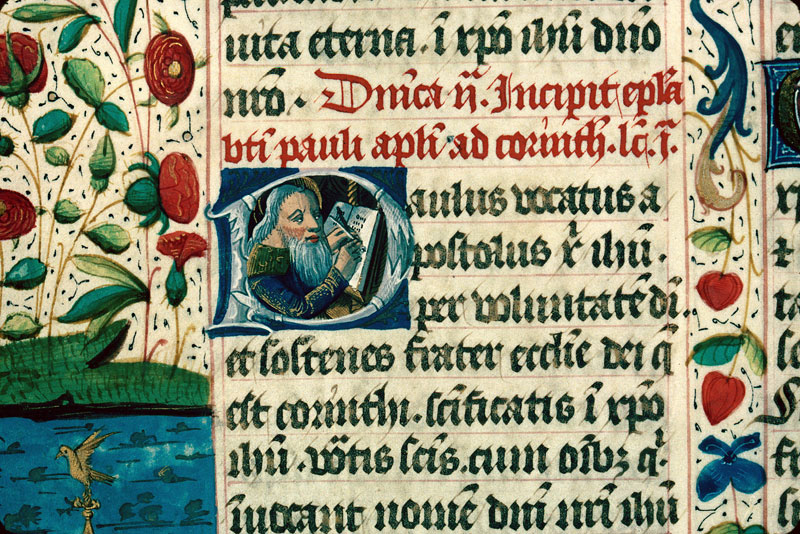 uita eterna. ī xp̄o ih̄u dn̄o
nr̄o. Dn̄ica ij. Incipit epl̄a
bt̄i pauli apl̄i ad corinth. lc̄. j.
Paulus vocatus a
postolus xp̄i ih̄u.
per voluntatē dī.
et sostenes frater eccl̄ie dei q̄
est corinthi. scīficatis ī xp̄o
ih̄u. vōtis sc̄is. cum oīb; q̄
inuocant nomē dn̄i nr̄i ih̄u